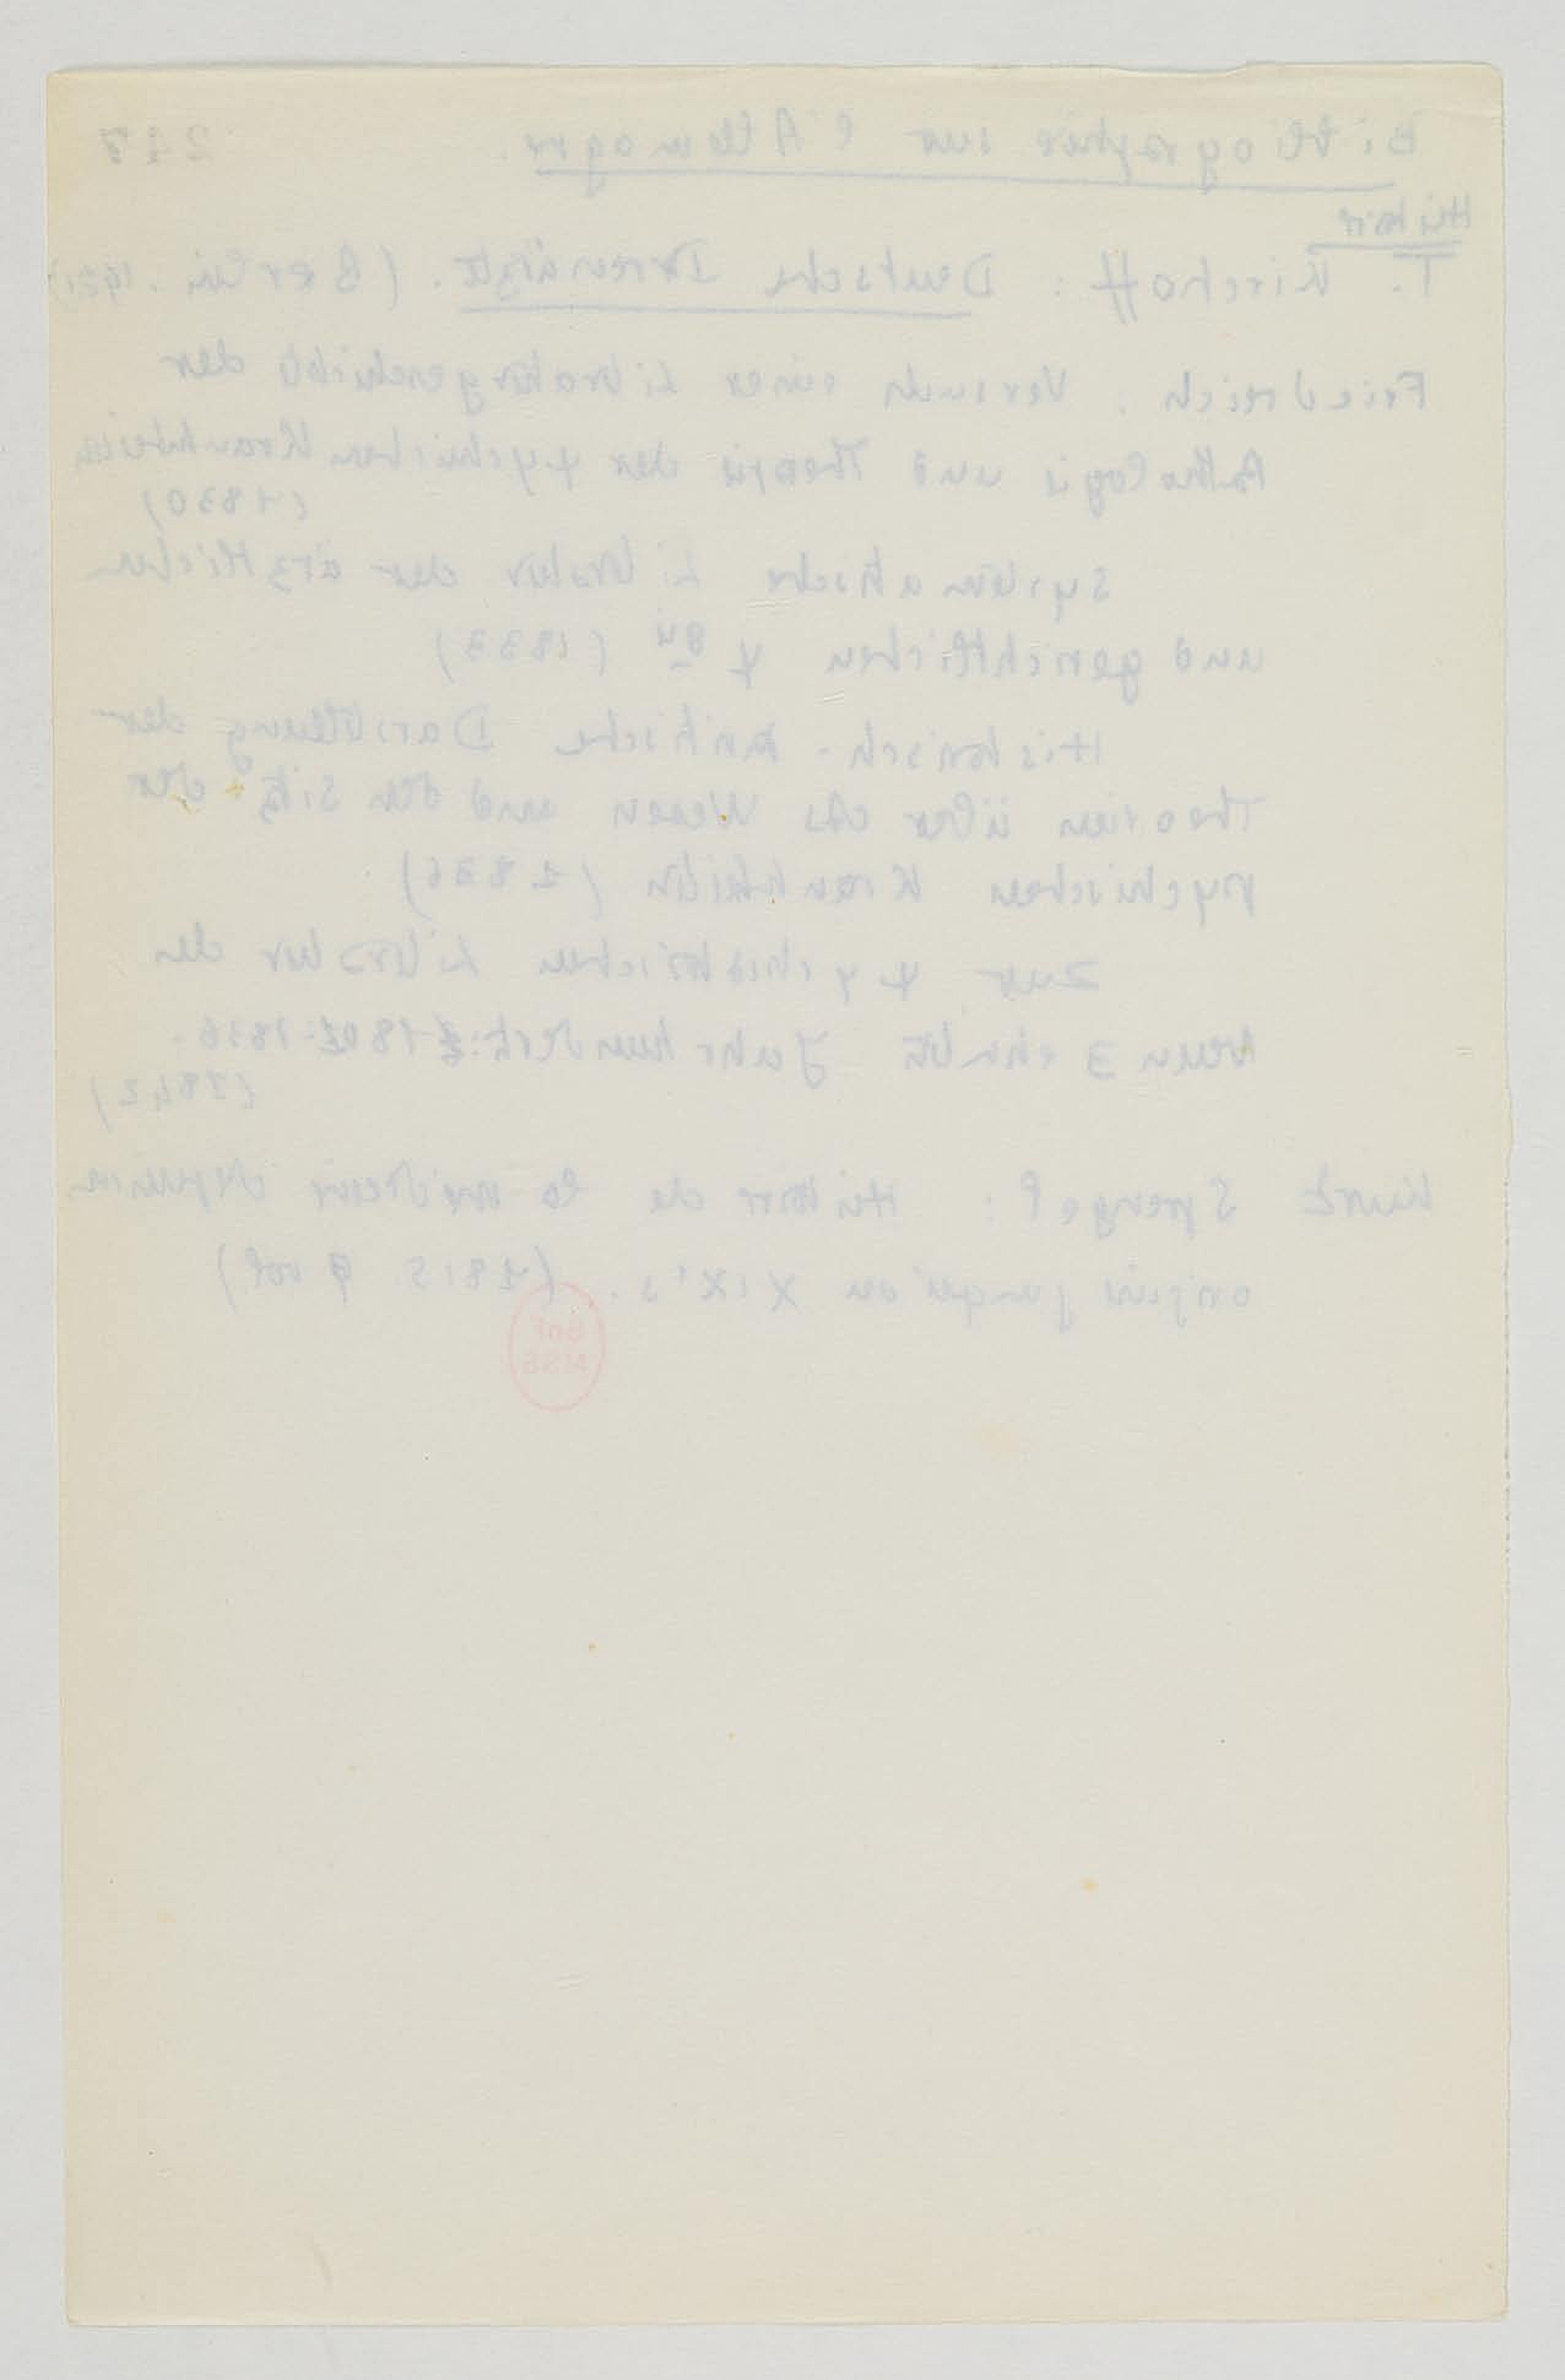 Bibliographie sur l'Allemagne. 217
Histoire
T. Kirchoff : Deutsche Irrenärzte. (Berlin. 1921)
Friedreich. Versuch einer Literaturgeschichte der
Pathologie und Therapie der psychischen Krankheiten
(1830)
Systematische Literatur der ärztlichen
und gerichtlichen ψ (1833)
Historisch-kritische Darstellung der
Theorien über das Wesen und den Sitz der
psychischen Krankheiten (1836)
Zur ψychiatrischen Literatur des
neunzehnten Jahrhunderts: 1801-1836.
(1842)
Kurt Sprengel : Histoire de la médecine depuis
origine jusqu'au XIX's. (1815 9 vol)
BnF
MSS